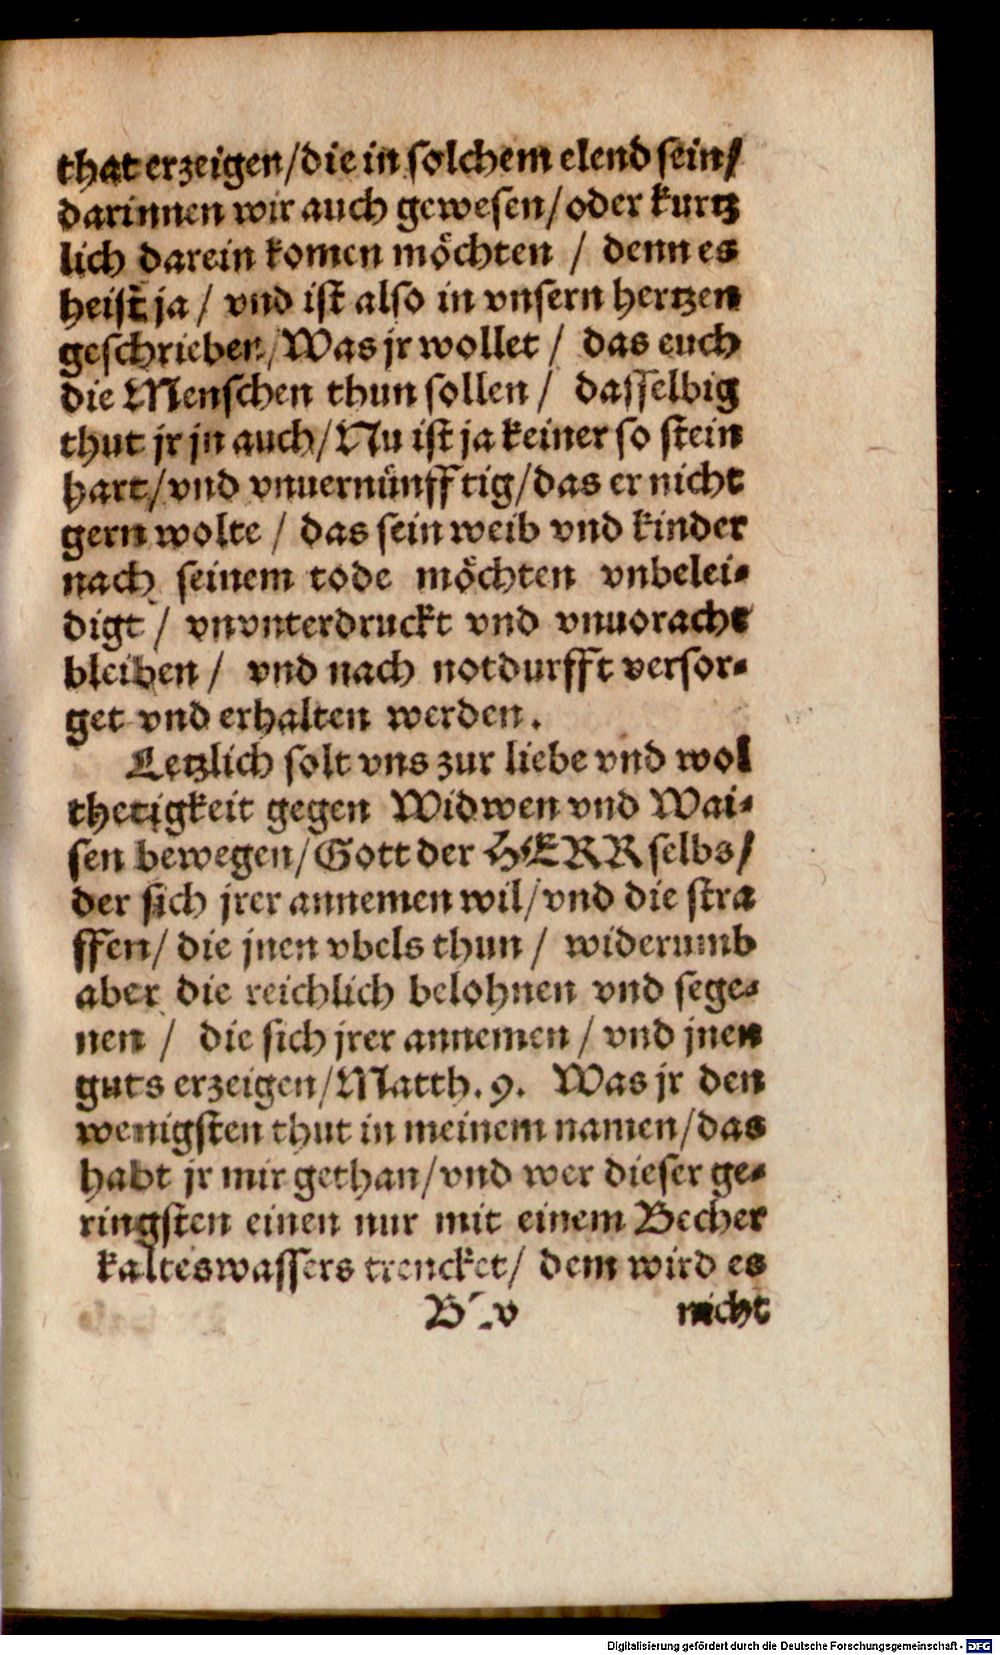 that erzeigen/die in solchem elend sein/
darinnen wir auch gewesen/oder kurtz
lich darein komen möchten / denn es
heist ja / vnd ist also in vnsern hertzen
geschrieben/Was jr wollet / das euch
die Menschen thun sollen / dasselbig
thut jr jn auch/Nu ist ja keiner so stein
hart/vnd vnuernünfftig/das er nicht
gern wolte / das sein weib vnd kinder
nach seinem tode möchten vnbelei-
digt / vnvnterdruckt vnd vnuoracht
bleiben / vnd nach notdurfft versor-
get vnd erhalten werden.
Letzlich solt vns zur liebe vnd wol
thetigkeit gegen Widwen vnd Wai-
sen bewegen/Gott der HERR selbs/
der sich jrer annemen wil/vnd die stra
ffen/ die jnen vbels thun / widerumb
aber die reichlich belohnen vnd sege-
nen / die sich jrer annemen / vnd jnen
guts erzeigen/Matth. 9. Was jr den
wenigsten thut in meinem namen/das
habt jr mir gethan/vnd wer dieser ge-
ringsten einen nur mit einem Becher
kalteswassers trencket/ dem wird es
B v nicht
Digitalisierung gefördert durch die Deutsche Forschungsgemeinschaft - DFG